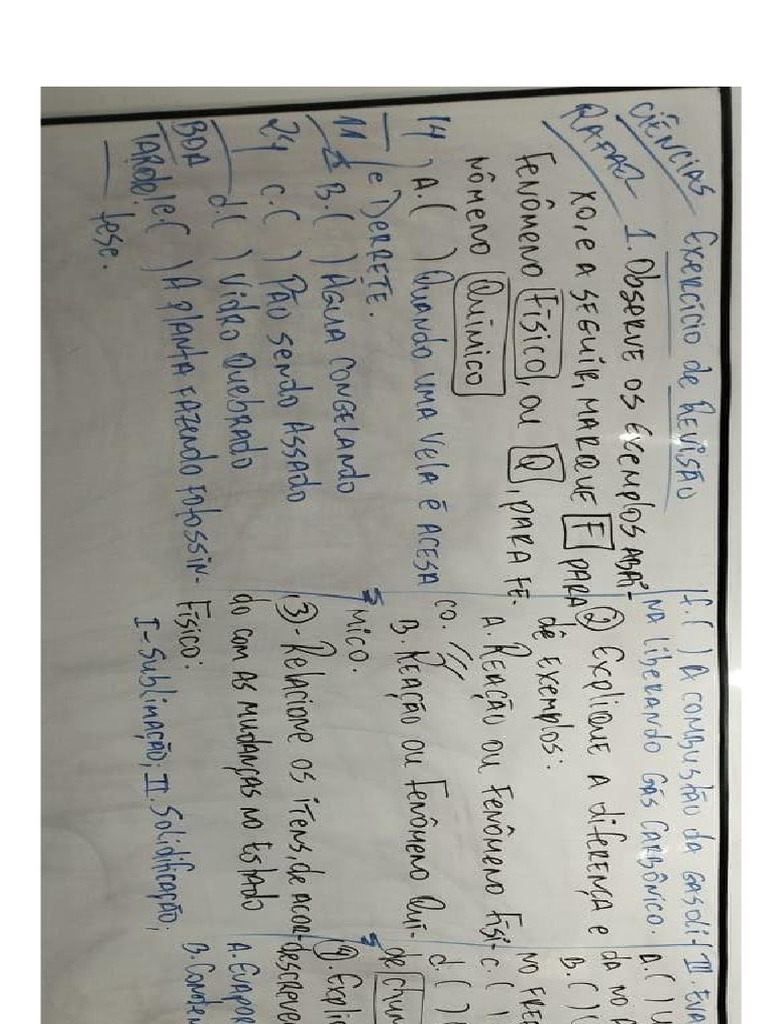 CIÊNCIAS
RAFAEL
14
11
24
BDA
TARDE!
Exercício de Revisão
1. Observe os exemplos abai-
xo, e a seguir, marque F para
fenômeno Físico, ou Q, para fe-
nômeno Químico
A. ( ) Quando uma vela é acesa
e derrete.
B. ( ) Água congelando
c. ( ) Pão sendo assado
d. ( ) Vidro quebrado
e. ( ) A planta fazendo fotossín-
tese.
f. ( ) A combustão da gasoli-
na liberando gás carbônico.
2 Explique a diferença e
dê exemplos:
A. Reação ou fenômeno físi-
co.
B. Reação ou fenômeno quí-
mico.
3 - Relacione os itens, de acor-
do com as mudanças no estado
físico:
I - Sublimação; II. Solidificação;
A. ( )
da no
B. ( )
no
c. ( )
d. ( )
de
descreve